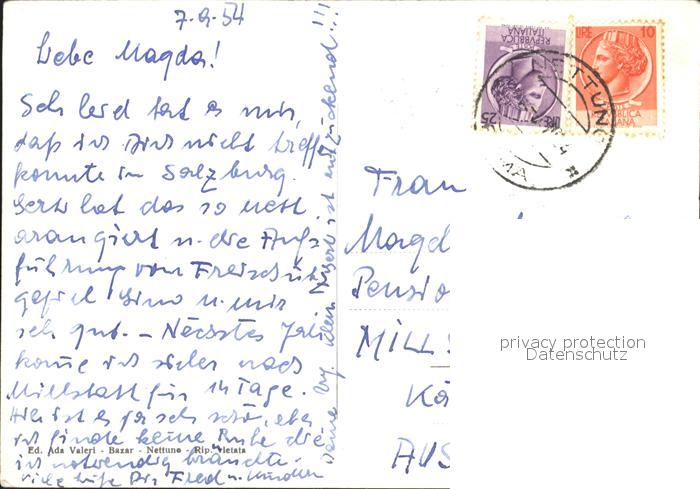 7.9.54
Liebe Magda!
Sehr leid tat es mir,
daß ich Dich nicht treffen
konnte in Salzburg.
Gerti hat das so nett
arangiert u. die Auf-
führung vom Freischütz
gefiel Gino u. mir
sehr gut. – Nächstes Jahr
komme ich sicher nach
Millstatt für 14 Tage.
Hier ist es ja sehr schön, aber
ich finde keine Ruhe die
ich notwendig brauchte.
Viele Fred u. Kindern
Deine klein ist entzückend!!!
Ed. Ada Valeri - Bazar - Nettuno - Rip. vietata
REPVBBLICA
ITALIANA
LIRE 25
LIRE 10
NETTUNO
ROMA
Frau
Magd
Pensio
MILLS
Kä
AUS
privacy protection
Datenschutz